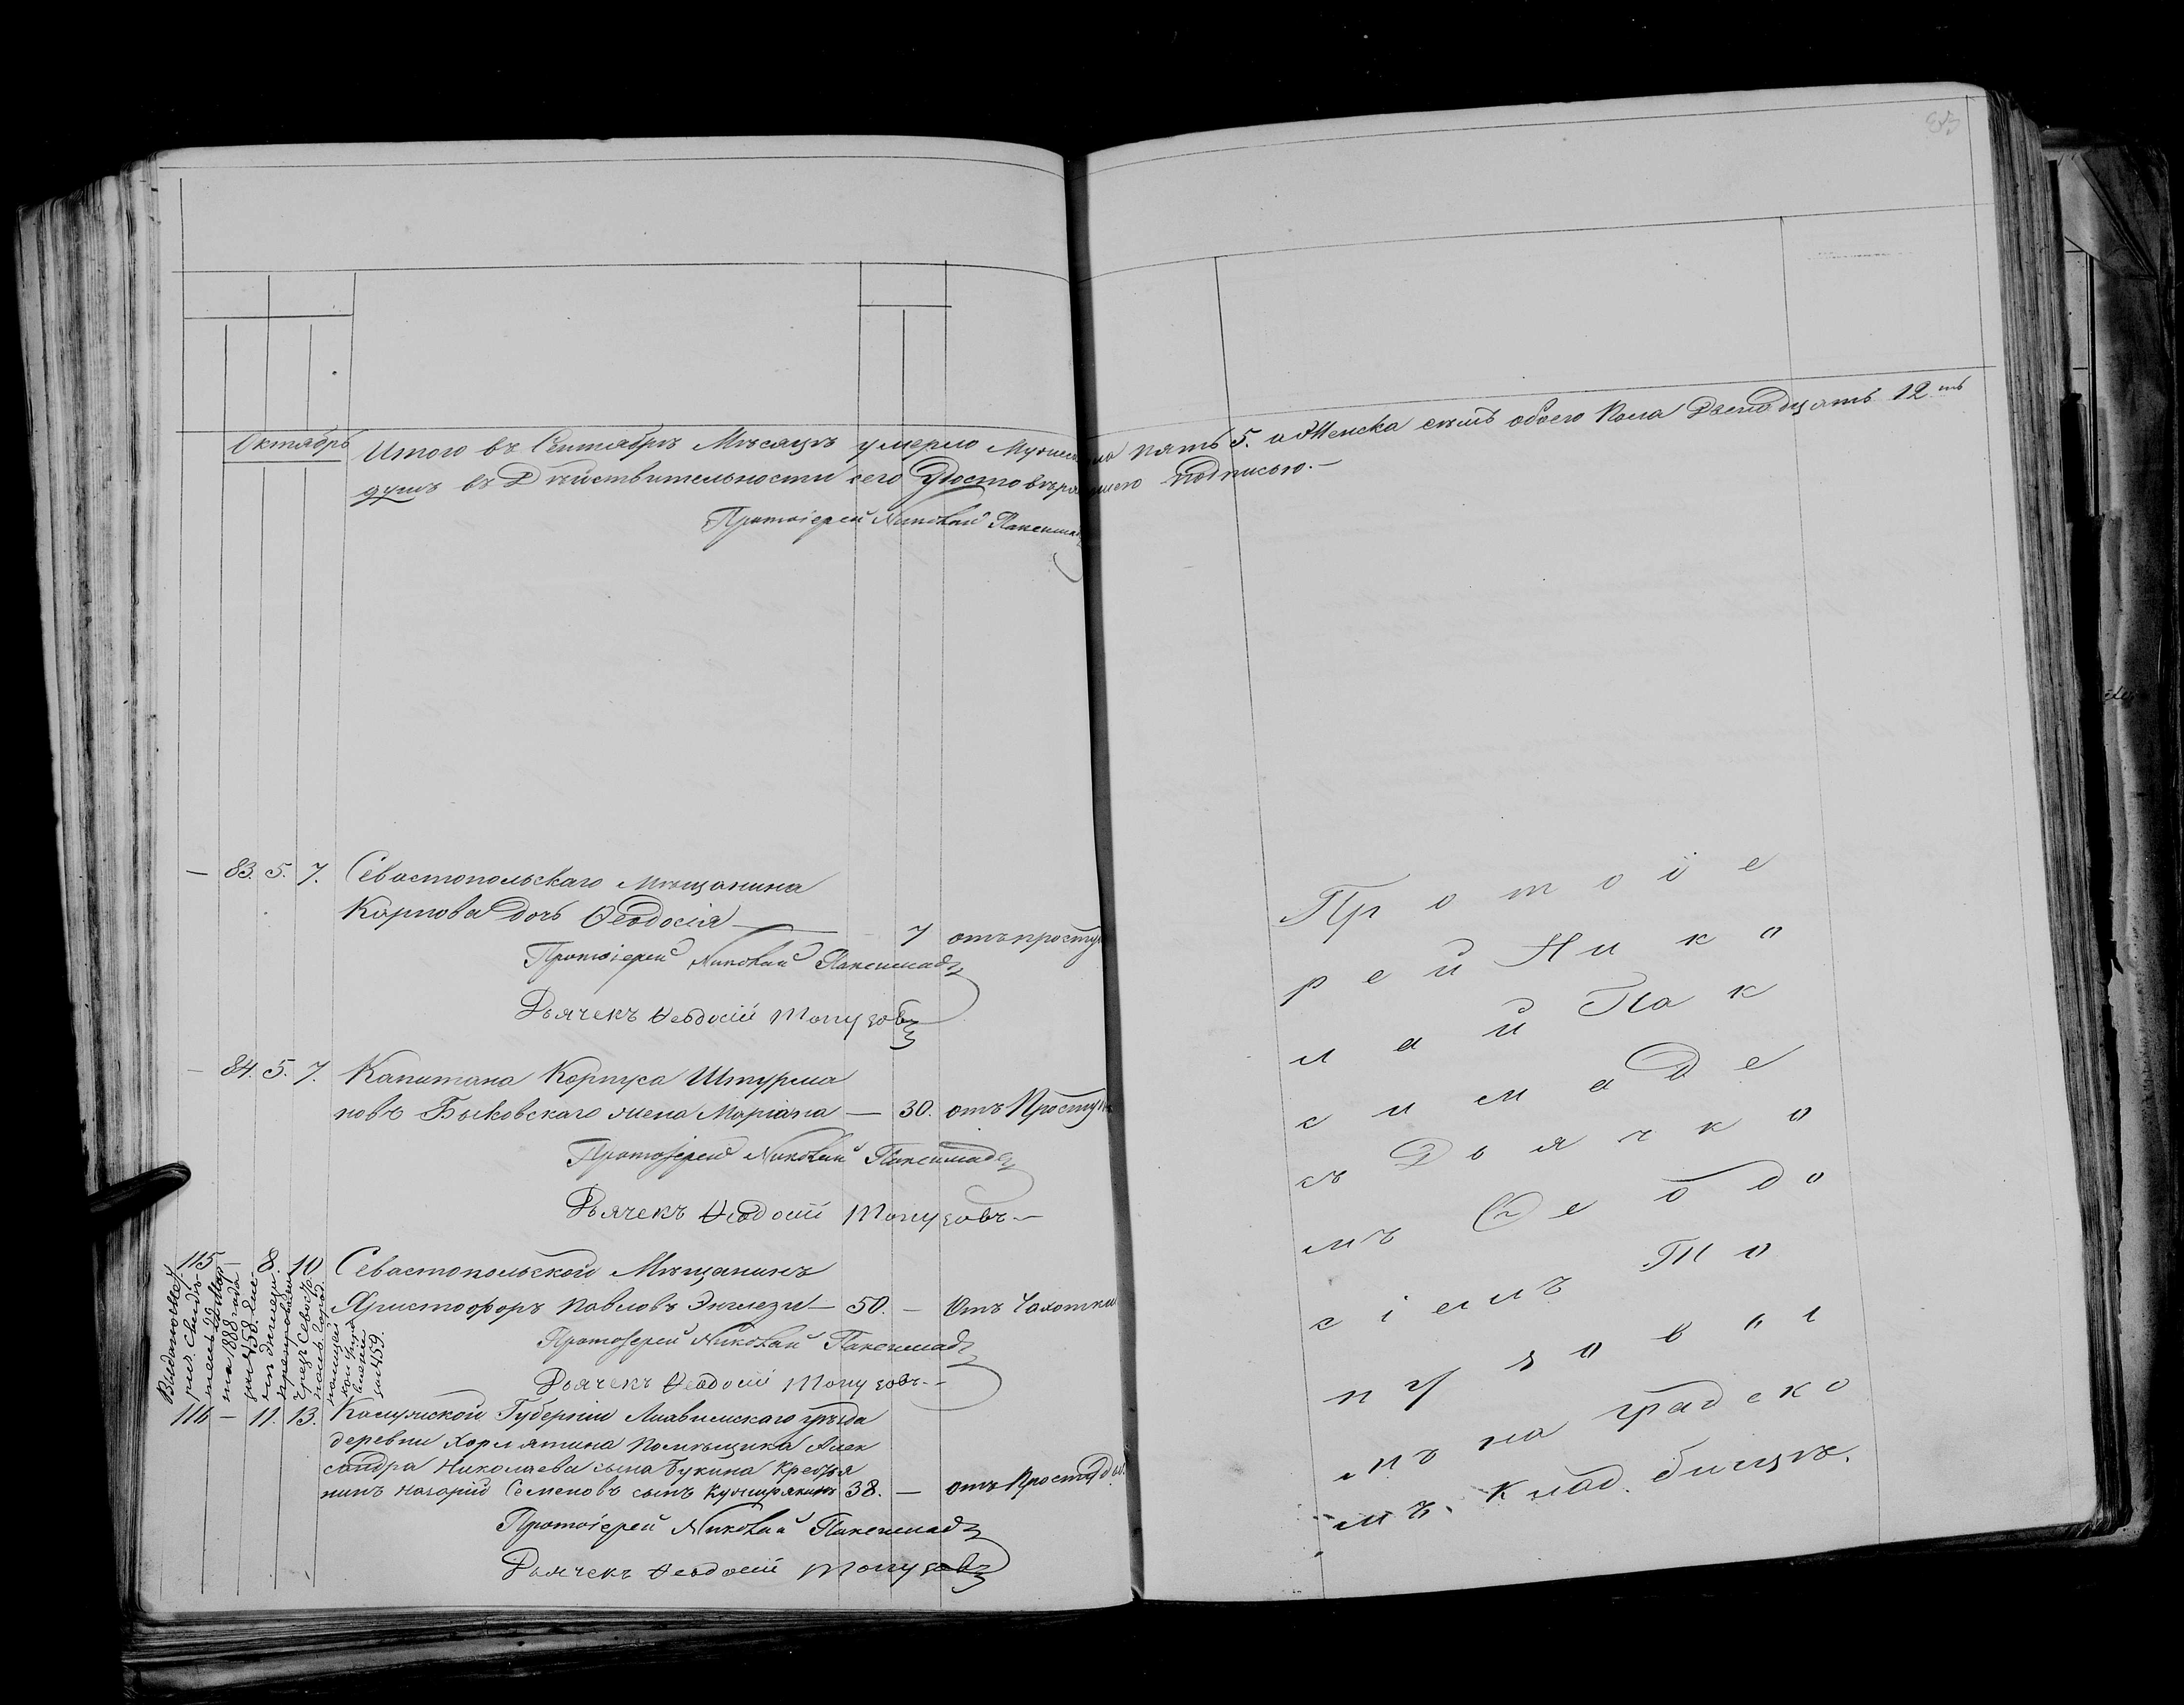 Октябрь
Итого въ Сентябрѣ Мѣсяцѣ умерло Мужеска пола пять 5. а Женска семь обоего Пола Двенадцать 12ть
душъ въ Дѣйствительности сего Удостовѣряемъ подписью.—
Протоіерей Николай Паксимадъ
— 83. 5. 7. Севастопольскаго Мѣщанина
Карпова дочь Ѳеодосія — 7 отъ просту
Протоіерей Николай Паксимадъ
Дьячекъ Ѳеодосій Топузовъ
— 84. 5. 7. Капитана Корпуса Штурма
новъ Быковскаго жена Маріана — 30. отъ Просту
Протоіерей Николай Паксимадъ
Дьячекъ Ѳеодосій Топузовъ.—
115 — 8. 10 Севастопольской Мѣщанинъ
Христофоръ Павловъ Энглези — 50. — Отъ Чахотки
Протоіерей Николай Паксимадъ
Дьячекъ Ѳеодосій Топузовъ.—
Выдано
1888 года
за № 458.
чрезъ Севасто
за № 459.
116 — 11. 13. Калужской Губерніи Лихвинскаго уѣзда
деревни Хармятина помѣщика Алек
сандра Николаева сына Букина Крестья
нинъ Назарій Семеновъ сынъ 38. — отъ Простуды.
Протоіерей Николай Паксимадъ
Дьячекъ Ѳеодосій Топузовъ
Протоіе
рей Нико
лай Пак
симаде
съ Дьячко
мъ Ѳеодо
сіемъ То
пузовы
мъ на градско
мъ кладбищѣ.